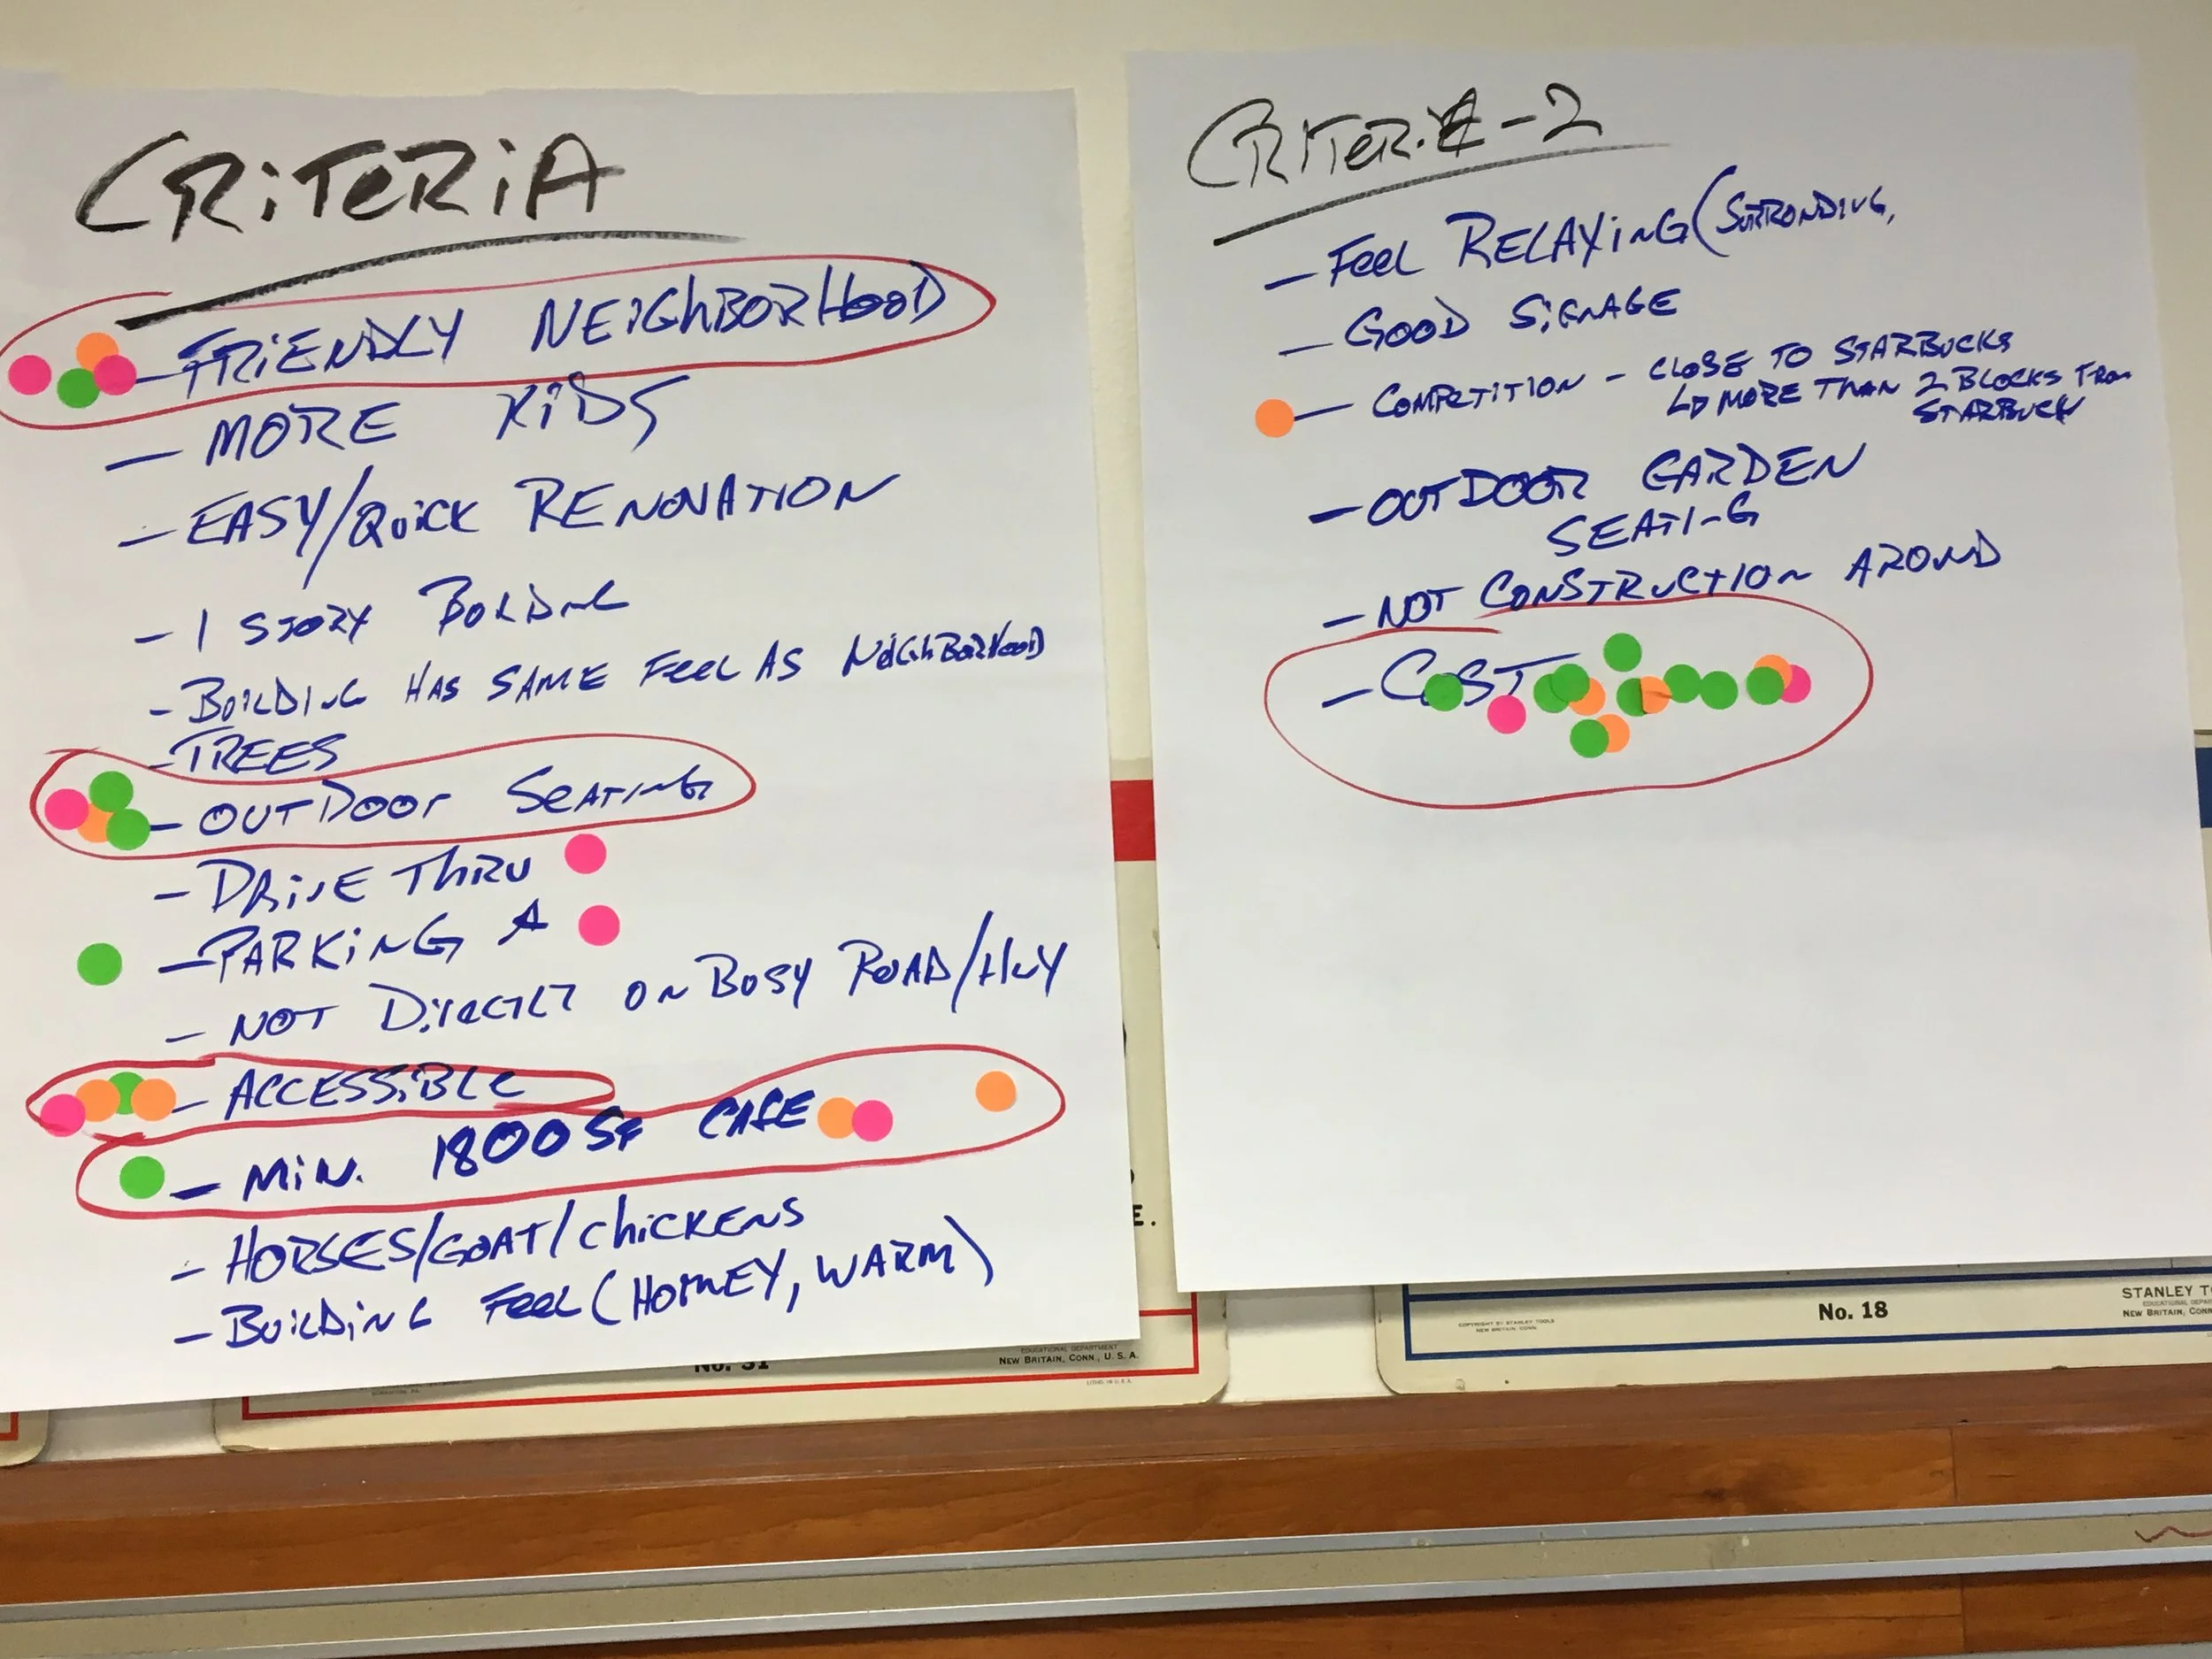 CRiTeRiA
- FRiENDLY NEiGhBORHOOD
- MORE KiDS
- EASY/QuiCK RENOVATION
- 1 STORY
- BuiLDiNG HAS SAME FeeL AS NeiGhBORHOOD
- TREES
- OUTDOOr SeATiNG
- DRiVE THRU
- PARKiNG
- NOT ON BUSY ROAD/HWY
- ACCESSiBLe
- MiN. 1800 SF CAFE
- HORSES/GOAT/ChiCKENS
- BuiLDiNG FeeL (HOMEY, WARM)
CRiTeRiA-2
- FeeL RELAXiNG (SURRONDING,
- GOOD SiGNAGE
- COMPETITION - CLOSE TO STARBUCKS
MORE THAN 2 BLOCKS FROM
STARBUCK
- OUTDOOR GARDEN
SEATING
- NOT CONSTRUCTION AROUND
- COST
No. 31
EDUCATIONAL DEPARTMENT
NEW BRITAIN, CONN., U.S.A.
LITHO. IN U.S.A.
E.
COPYRIGHT BY STANLEY TOOLS
NEW BRITAIN, CONN.
No. 18
STANLEY TO
EDUCATIONAL DEPA
NEW BRITAIN, CONN